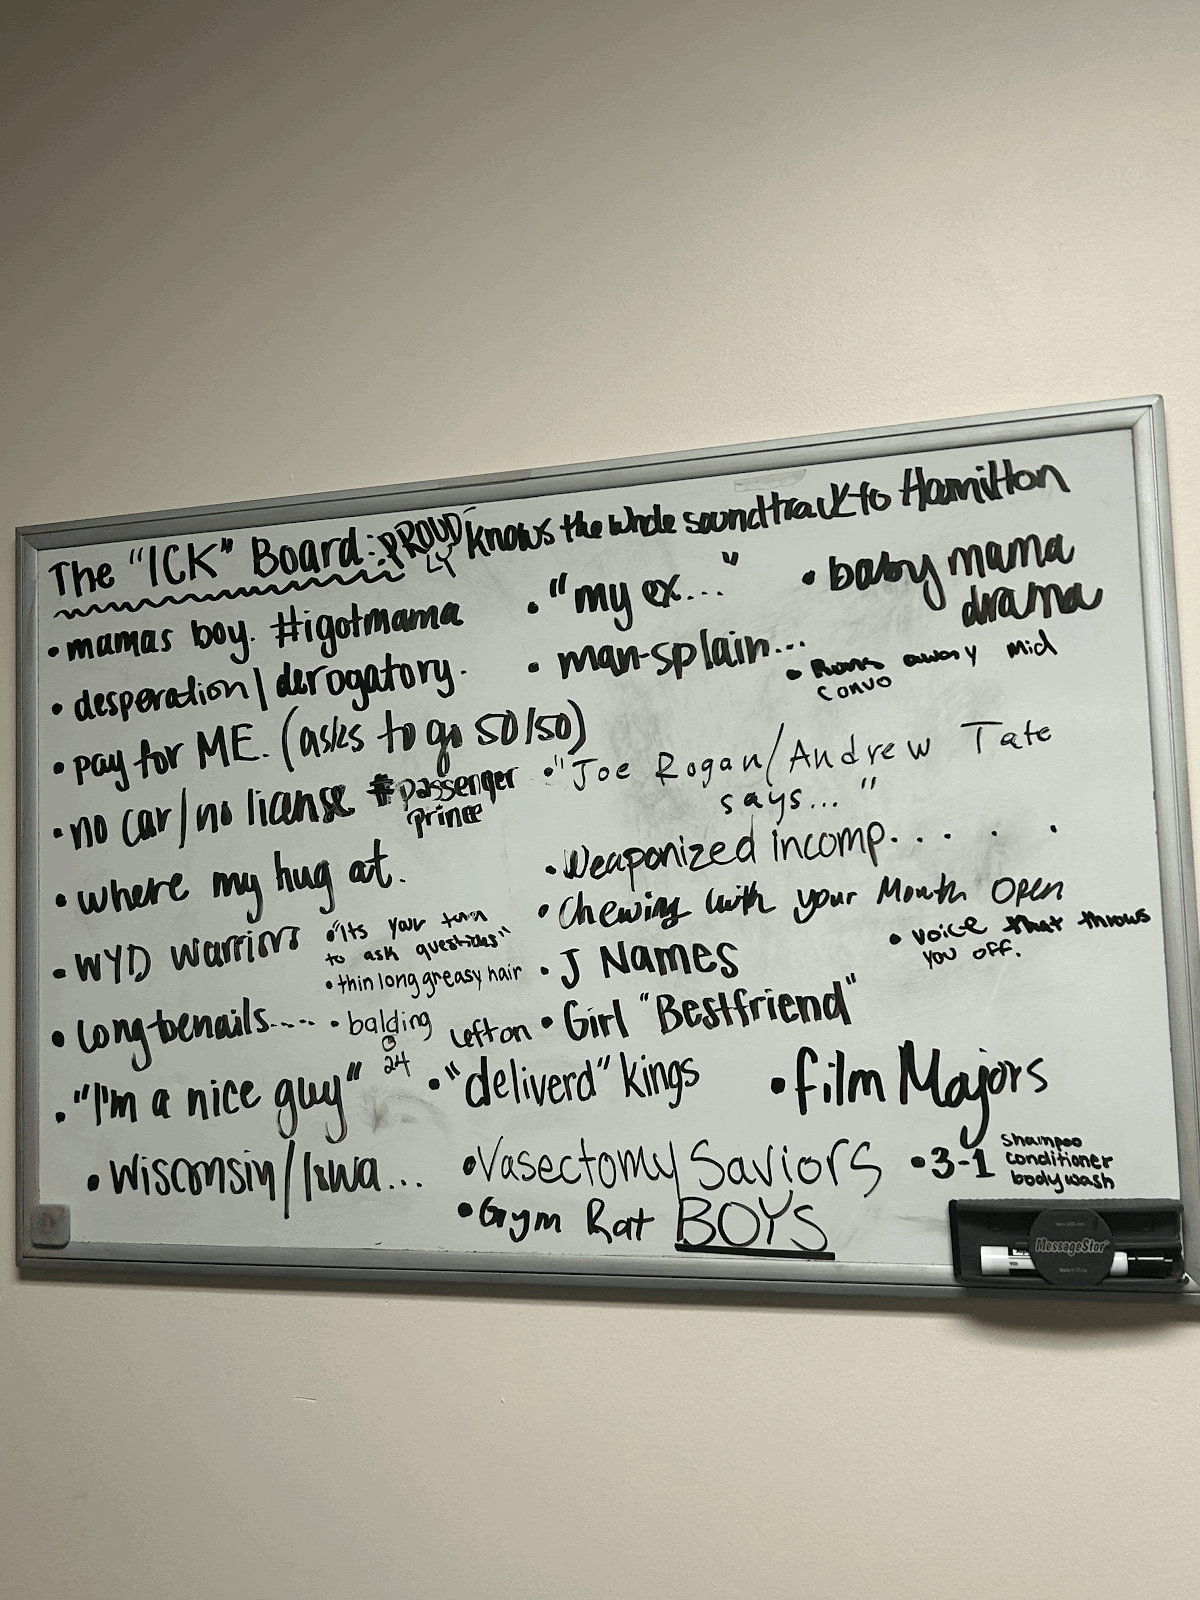 The "ICK" Board: PROUD LY knows the whole soundtrack to Hamilton
• mamas boy. #igotmama
• desperation/derogatory.
• pay for ME. (asks to go 50/50)
• no car/no license #passenger prince
• where my hug at.
• WYD warriors
• "Its your turn
to ask questions"
• thin long greasy hair
• long toenails.....
• balding
@
24
• "I'm a nice guy"
• Wisconsin/Iowa...
• "my ex..."
• man-splain...
• baby mama
drama
• Runs away mid
convo
• "Joe Rogan/Andrew Tate
says..."
• Weaponized incomp. . . . .
• Chewing with your Mouth Open
• voice that throws
you off.
• J Names
• Girl "Bestfriend"
left on • "deliverd" kings
• film Majors
• Vasectomy Saviors
• 3-1 shampoo
conditioner
bodywash
• Gym Rat BOYS
MessageStor